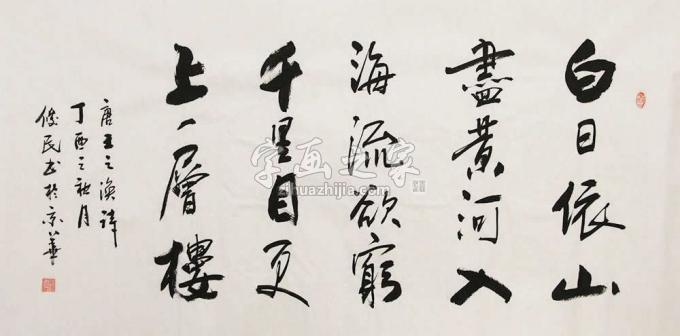 白日依山
盡黄河入
海流欲窮
千里目更
上一層樓
唐王之渙詩
丁酉之秋月
俊民书於京華
字画之家
zihuazhijia.com